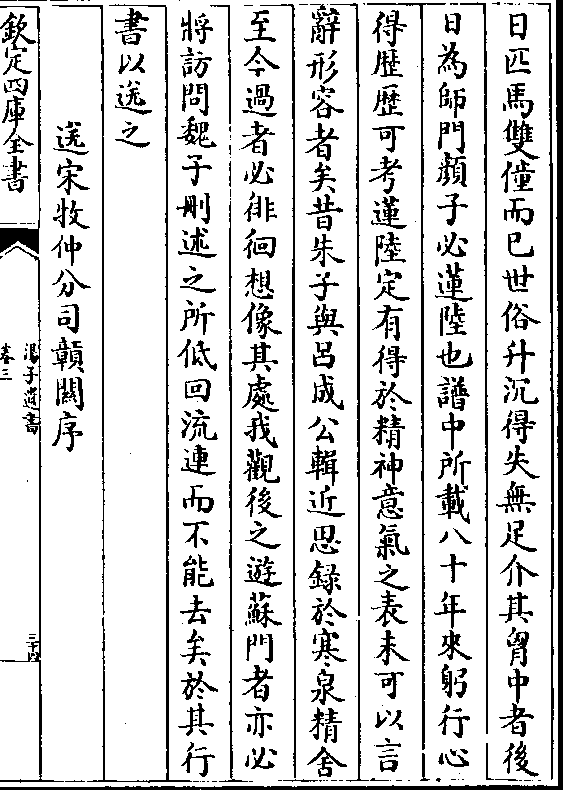 日匹馬雙僮而已世俗升沉得失無足介其胷中者後
日為師門顏子必蓮陸也譜中所載八十年來躬行心
得歴歴可考蓮陸定有得於精神意氣之表未可以言
辭形容者矣昔朱子與呂成公輯近思録於寒泉精舍
至今過者必徘徊想像其處我觀後之遊蘇門者亦必
將訪問魏子刪述之所低回流連而不能去矣於其行
書以送之
送宋牧仲分司贑關序
欽定四庫全書
湯子遺書
卷三
三十四